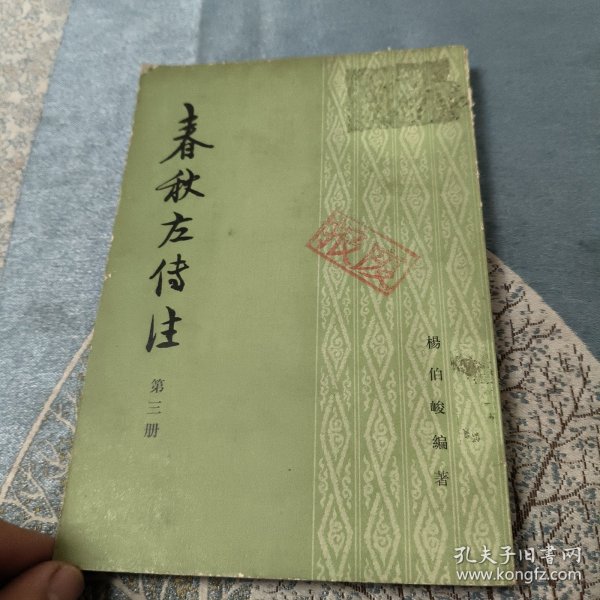 春秋左传注
第三册
楊伯峻編著
孔夫子旧书网
www.kongfz.com